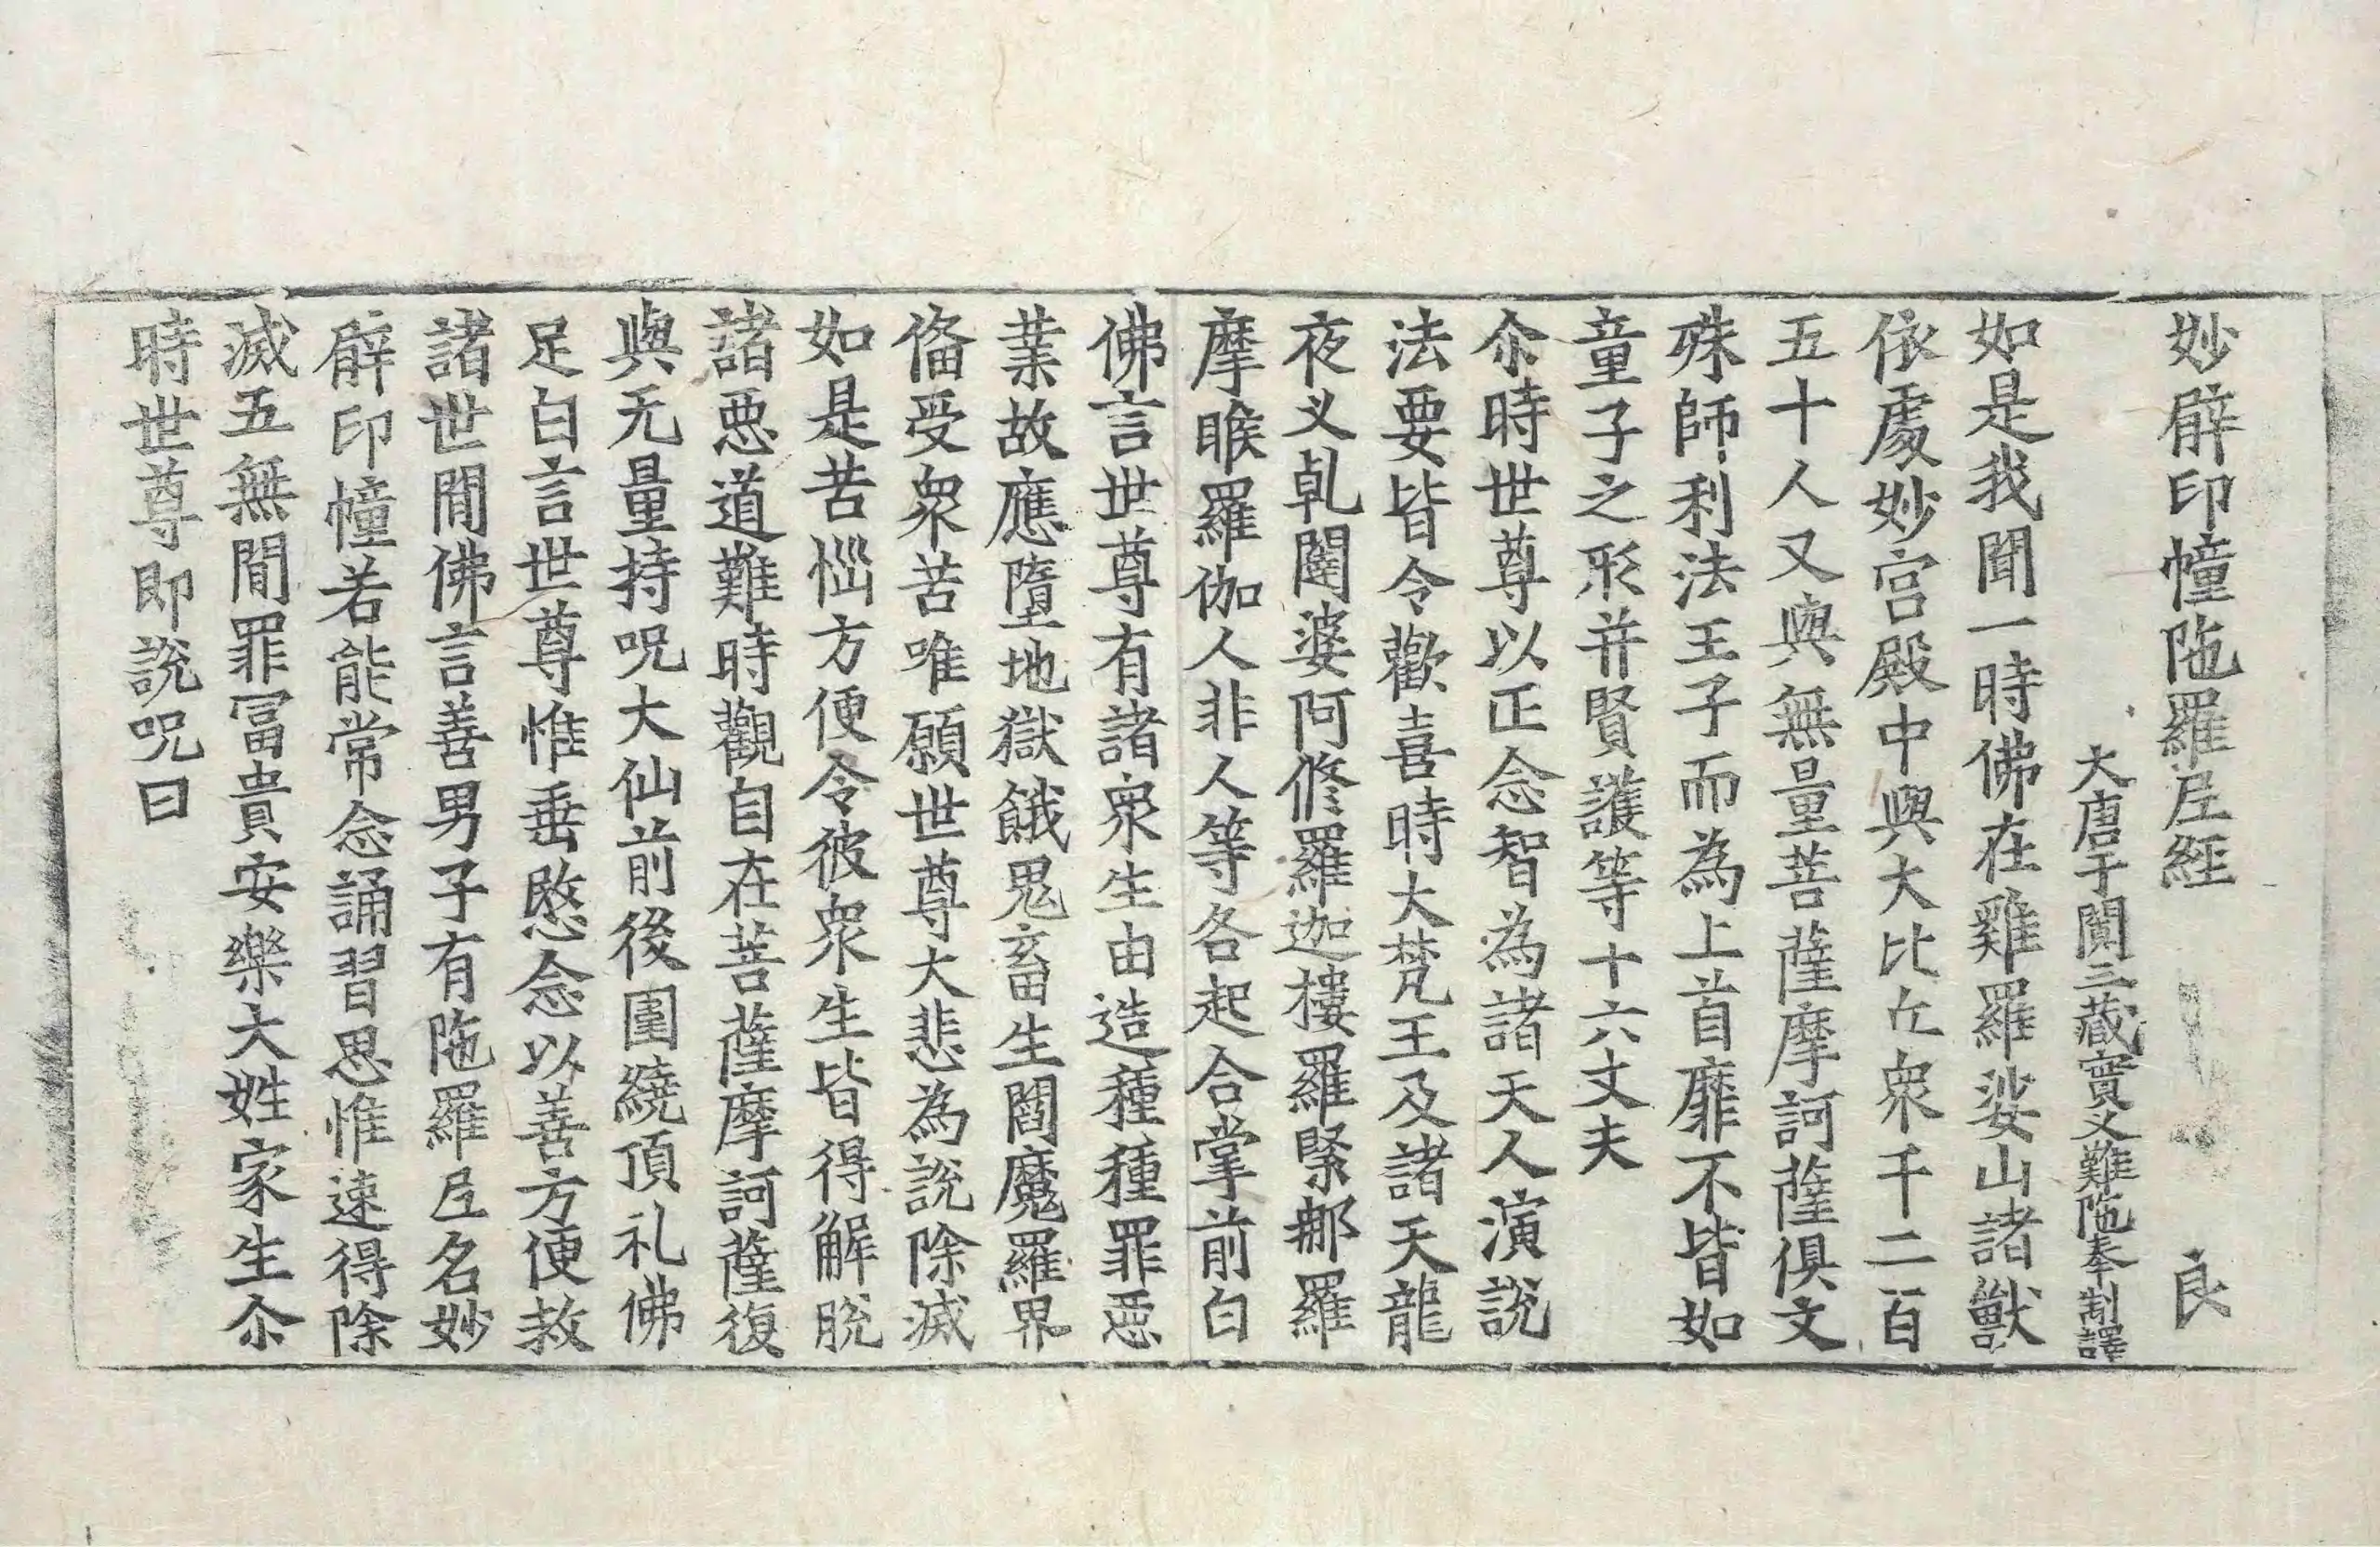 妙臂印幢陁羅尼經 良
大唐于闐三藏實叉難陁奉制譯
如是我聞一時佛在雞羅娑山諸獸
依處妙宫殿中與大比丘衆千二百
五十人又與無量菩薩摩訶薩俱文
殊師利法王子而為上首靡不皆如
童子之形并賢護等十六丈夫
尒時世尊以正念智為諸天人演說
法要皆令歡喜時大梵王及諸天龍
夜叉乹闥婆阿脩羅迦樓羅緊那羅
摩睺羅伽人非人等各起合掌前白
佛言世尊有諸衆生由造種種罪惡
業故應墮地獄餓鬼畜生閻魔羅界
俻受衆苦唯願世尊大悲為說除滅
如是苦惱方便令彼衆生皆得解脫
諸惡道難時觀自在菩薩摩訶薩復
與无量持呪大仙前後圍繞頂礼佛
足白言世尊惟垂愍念以善方便救
諸世間佛言善男子有陁羅尼名妙
臂印幢若能常念誦習思惟速得除
滅五無間罪冨貴安樂大姓家生尒
時世尊即說呪曰